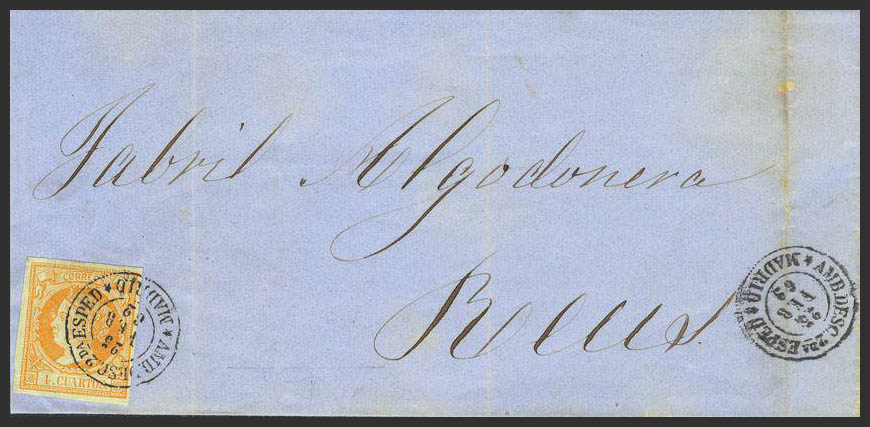 Fabril Algodonera
Reus
CORREOS
4 CUARTOS
AMB. DESC. 2DA ESPED * MADRID *
AMB. DESC. 2DA ESPED * MADRID *
25